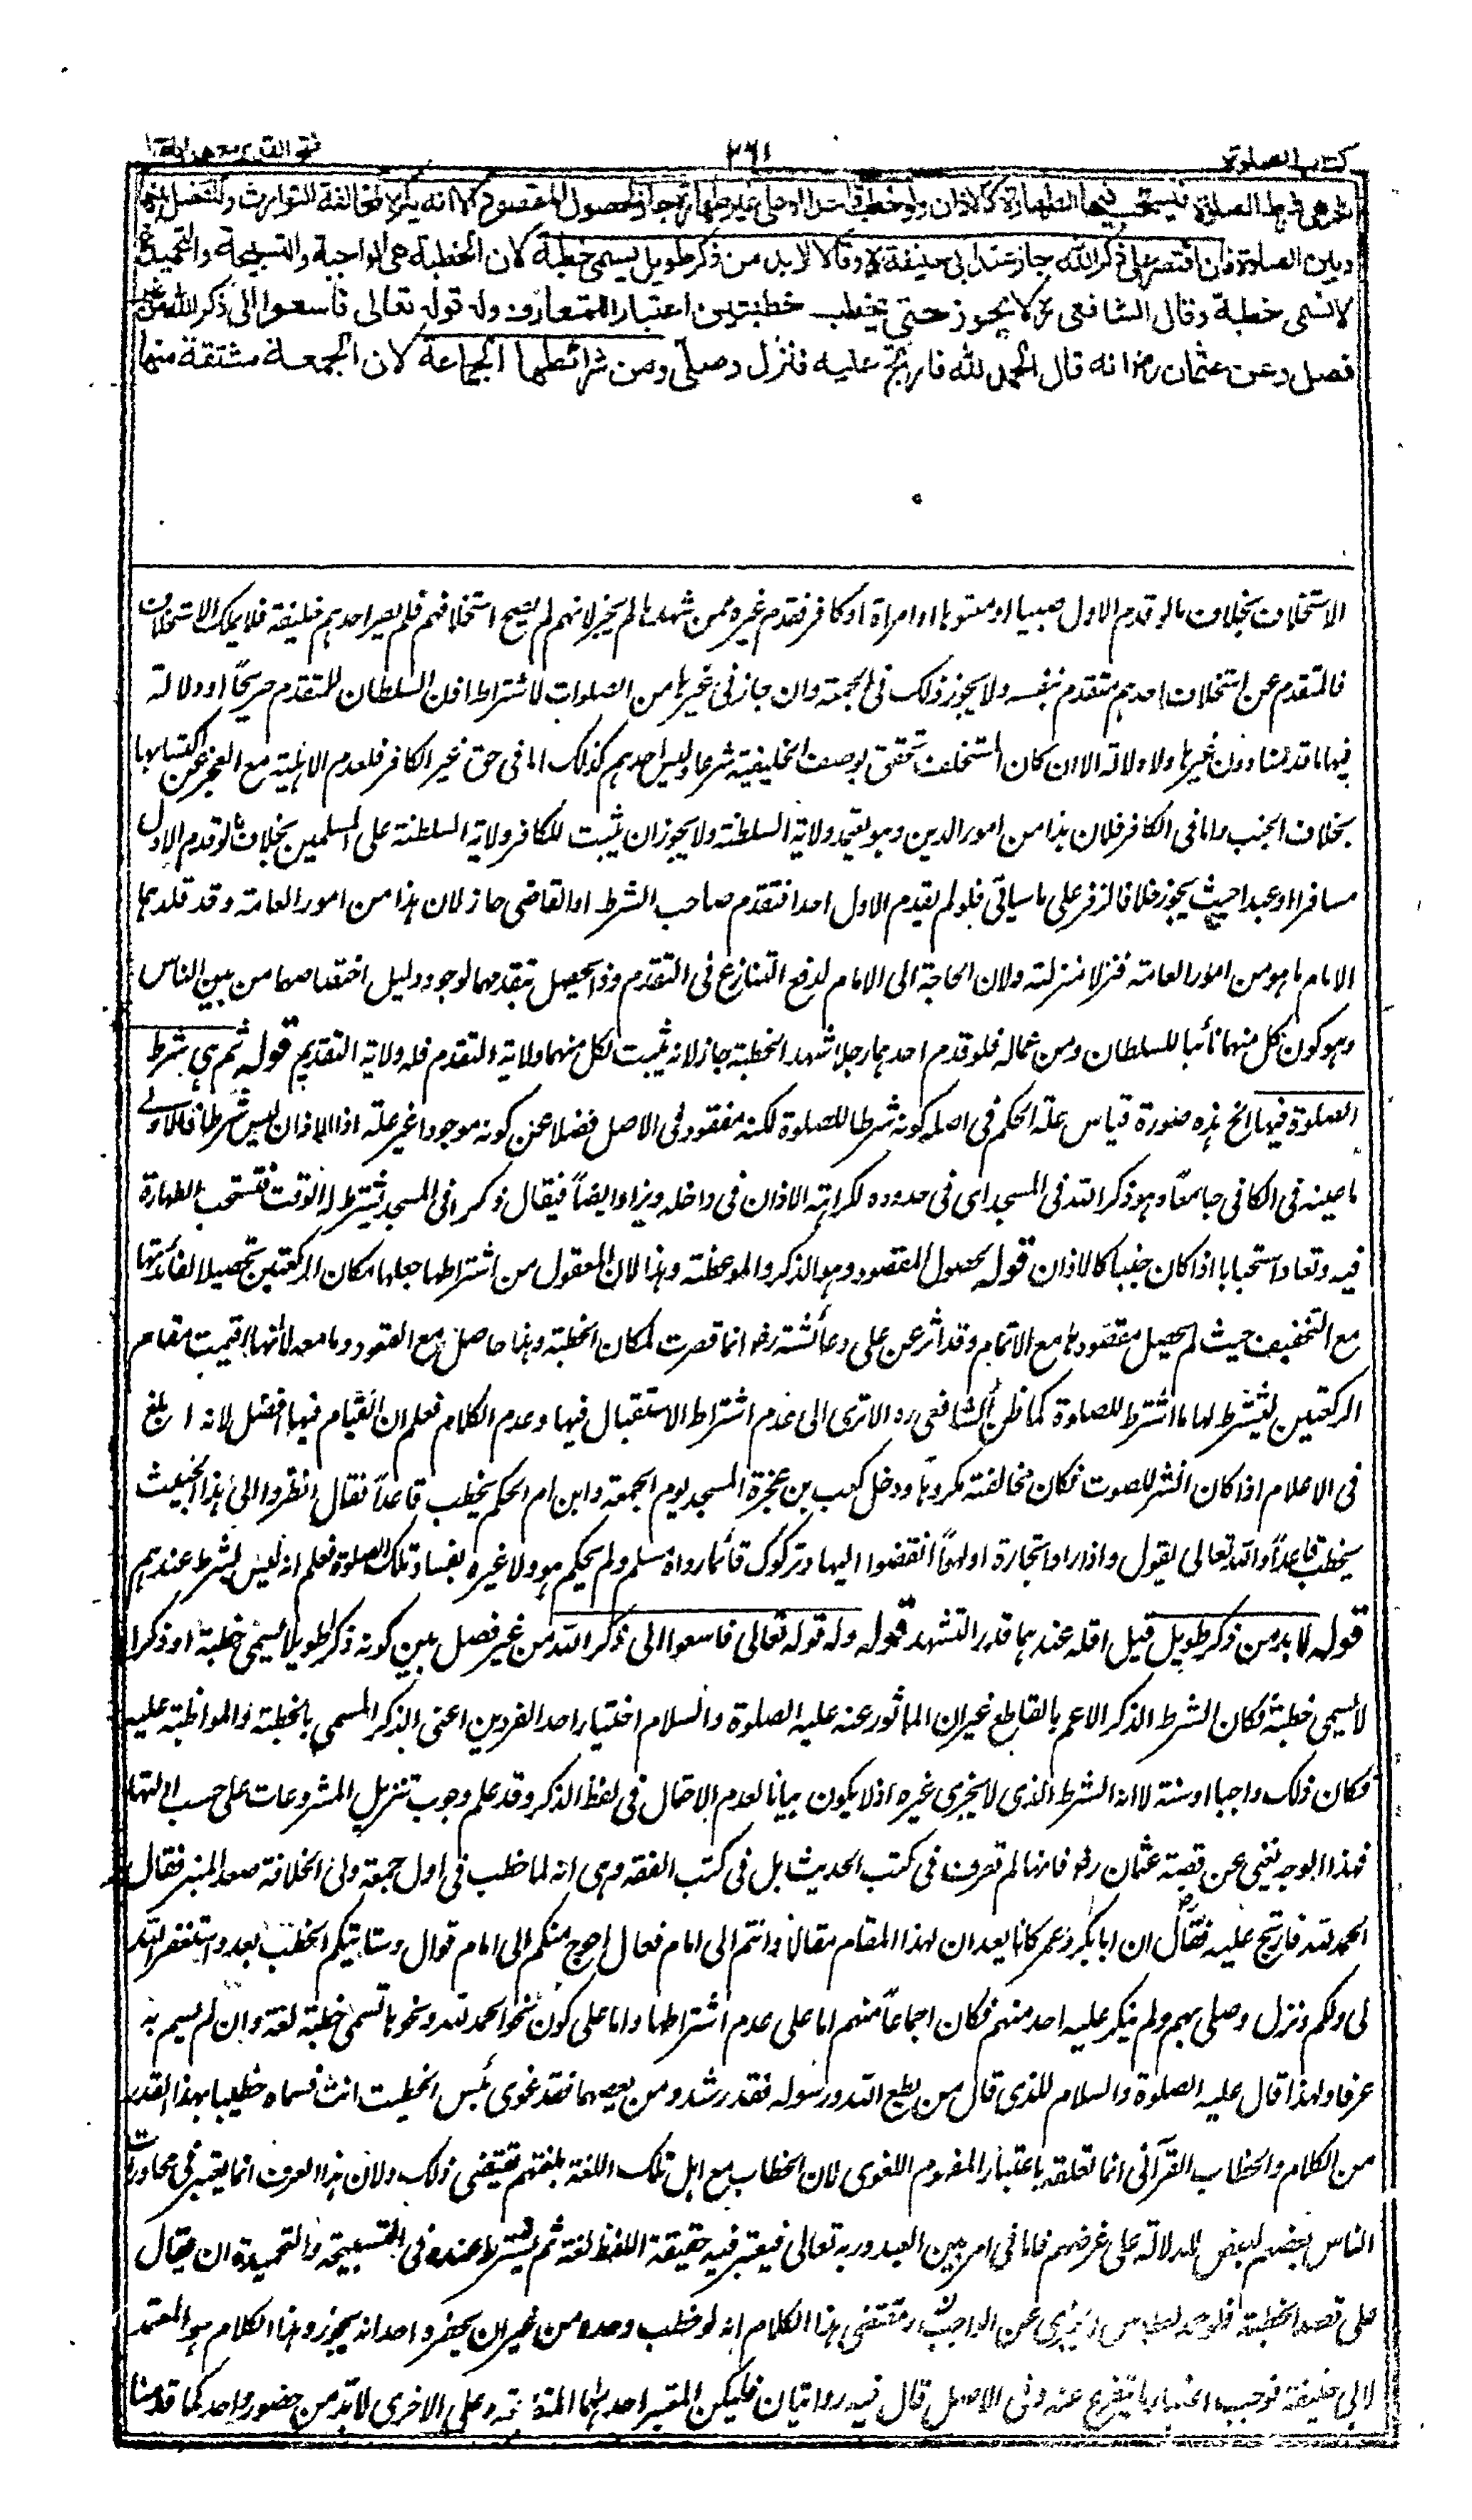 كتاب الصلوة
٢٦١
فتح القدير مع هداية ج ١
شرط الصلوة فيستحب فيها الطهارة كالاذان ولو خطب قاعدا او على غير طهارة جاز لحصول المقصود الا انه يكره لمخالفة التوارث وللفصل بينها
وبين الصلوة فان اقتصر على ذكر الله جاز عند ابي حنيفة رح وقالا لا بد من ذكر طويل يسمى خطبة لان الخطبة هي الواجبة والتسبيحة والتحميدة
لا تسمى خطبة وقال الشافعي رح لا يجوز حتى يخطب خطبتين اعتبارا للمتعارف وله قوله تعالى فاسعوا الى ذكر الله من غير
فصل وعن عثمان رض انه قال الحمد لله فارتج عليه فنزل وصلى ومن شرائطها الجماعة لان الجمعة مشتقة منها
الاستخلاف بخلاف ما لو قدم الاول صبيا او معتوها او امراة او كافر فقدم غيره ممن شهدها لم يجز لانهم لم يصح استخلافهم فلم يصر احدهم خليفة فلا يملك الاستخلاف
فالمتقدم عن استخلاف احدهم متقدم بنفسه ولا يجوز ذلك في الجمعة وان جاز في غيرها من الصلوات لاشتراط اذن السلطان للمتقدم صريحا او دلالة
فيها ما قدمنا دون غيرها ولا دلالة الا ان كان المستخلف تحقق بوصف الخليفية شرعا وليس احدهم كذلك اما في حق غير الكافر فلعدم الاهلية مع العجز عن اكتسابها
بخلاف الجنب واما في الكافر فلان هذا من امور الدين وهو يعتمد ولاية السلطنة ولا يجوز ان يثبت للكافر ولاية السلطنة على المسلمين بخلاف ما لو قدم الاول
مسافرا او عبدا حيث يجوز خلافا لزفر على ما سياتي فلو لم يقدم الاول احدا فتقدم صاحب الشرط او القاضي جاز لان هذا من امور العامة وقد قلدهما
الامام ما هو من امور العامة فنزلا منزلته ولان الحاجة الى الامام لدفع التنازع في التقدم وذا يحصل بتقدمهما لوجود دليل اختصاصهما من بين الناس
وهو كون كل منهما نائبا للسلطان ومن عماله فلو قدم احدهما رجلا شهد الخطبة جاز لانه يثبت لكل منهما ولاية التقدم فله ولاية التقديم قوله ثم هي شرط
الصلوة فيها الخ هذه صورة قياس علة الحكم في اصله كونه شرطا للصلوة لكنه مفقود في الاصل فضلا عن كونه موجودا غير علة اذ الاذان ليس شرطا فالاولى
ما عينه في الكافي جامعا وهو ذكر الله في المسجد اى في حدوده لكراهة الاذان في داخله ويزاد ايضا فيقال ذكر في المسجد يشترط له الوقت فتستحب الطهارة
فيه وتعاد استحبابا اذا كان جنبا كالاذان قوله لحصول المقصود وهو الذكر والموعظة وهذا لان المعقول من اشتراطها جعلها مكان الركعتين تحصيلا لفائدتها
مع التخفيف حيث لم يحصل مقصودها مع الاتمام وقد اثر عن على وعائشة رض انما قصرت لمكان الخطبة وهذا حاصل مع القعود وما معه لا انها اقيمت مقام
الركعتين ليشترط لها ما اشترط للصلوة كما ظن الشافعي ره الا ترى الى عدم اشتراط الاستقبال فيها وعدم الكلام فعلم ان القيام فيها افضل لانه ابلغ
في الاعلام اذ كان انشر للصوت فكان مخالفته مكروها ودخل كعب بن عجزة المسجد يوم الجمعة وابن ام الحكم يخطب قاعدا فقال انظروا الى هذا الخبيث
يخطب قاعدا والله تعالى يقول واذا راوا تجارة او لهوا انفضوا اليها وتركوك قائما رواه مسلم ولم يحكم هو ولا غيره بفساد تلك الصلوة فعلم انه ليس بشرط عندهم
قوله لا بد من ذكر طويل قيل اقله عندهما قدر التشهد قوله وله قوله تعالى فاسعوا الى ذكر الله من غير فصل بين كونه ذكرا طويلا يسمى خطبة او ذكرا
لا يسمى خطبة فكان الشرط الذكر الاعم بالقاطع غير ان الماثور عنه عليه الصلوة والسلام اختيار احد الفردين اعنى الذكر المسمى بالخطبة والمواظبة عليه
فكان ذلك واجبا او سنة لا انه الشرط الذى لا يجزى غيره اذ لا يكون بيانا لعدم الاجمال في لفظ الذكر وقد علم وجوب تنزيل المشروعات على حسب ادلتها
فهذا الوجه يغني عن قصة عثمان رض فانها لم تعرف في كتب الحديث بل في كتب الفقه وهى انه لما خطب في اول جمعة ولى الخلافة صعد المنبر فقال
الحمد لله فارتج عليه فقال ان ابا بكر وعمر كانا يعدان لهذا المقام مقالا وانتم الى امام فعال احوج منكم الى امام قوال وستاتيكم الخطب بعد واستغفر الله
لى ولكم ونزل وصلى بهم ولم ينكر عليه احد منهم فكان اجماعا منهم اما على عدم اشتراطها واما على كون نحو الحمد لله ونحوها تسمى خطبة لغة وان لم يسم به
عرفا ولهذا قال عليه الصلوة والسلام للذى قال من يطع الله ورسوله فقد رشد ومن يعصهما فقد غوى بئس الخطيب انت فسماه خطيبا بهذا القدر
من الكلام والخطاب القرآنى انما تعلقه باعتبار المفهوم اللغوى لان الخطاب مع اهل تلك اللغة بلغتهم يقتضى ذلك ولان هذا العرف انما يعتبر في محاورات
الناس بعضهم لبعض للدلالة على غرضهم فاما في امر بين العبد وربه تعالى فيعتبر فيه حقيقة اللفظ لغة ثم يشترط عنده في التسبيحة والتحميدة ان يقال
على قصد الخطبة فلو حمد لعطاس لا يجزى عن الواجب ومقتضى هذا الكلام انه لو خطب وحده من غير ان يحضره احد انه يجوز وهذا الكلام هو المعتمد
لابى حنيفة فوجب اعتبار ما يتفرع عنه وفي الاصل قال فيه روايتان فليكن المعتبر احدهما المتفرعة وعلى الاخرى لا بد من حضور واحد كما قدمنا